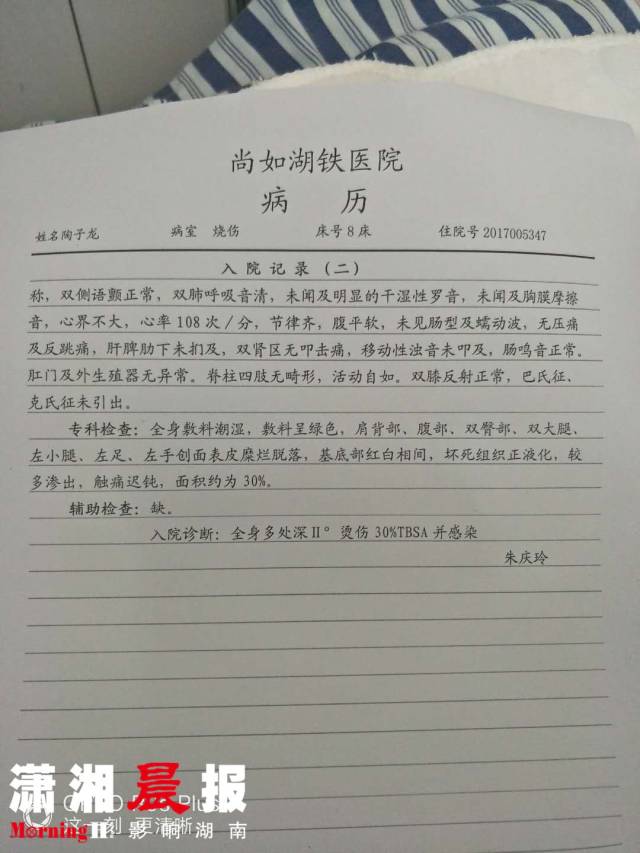 尚如湖铁医院
病 历
姓名陶子龙 病室 烧伤 床号8床 住院号2017005347
入院记录(二)
称，双侧语颤正常，双肺呼吸音清，未闻及明显的干湿性罗音，未闻及胸膜摩擦
音，心界不大，心率108次/分，节律齐，腹平软，未见肠型及蠕动波，无压痛
及反跳痛，肝脾肋下未扪及，双肾区无叩击痛，移动性浊音未叩及，肠鸣音正常。
肛门及外生殖器无异常。脊柱四肢无畸形，活动自如。双膝反射正常，巴氏征、
克氏征未引出。
专科检查：全身敷料潮湿，敷料呈绿色，肩背部、腹部、双臀部、双大腿、
左小腿、左足、左手创面表皮糜烂脱落，基底部红白相间，坏死组织正液化，较
多渗出，触痛迟钝，面积约为30%。
辅助检查：缺。
入院诊断：全身多处深Ⅱ°烫伤30%TBSA并感染
朱庆玲
潇湘晨报
Morning 影响湖南
Plus
这一刻 更清晰